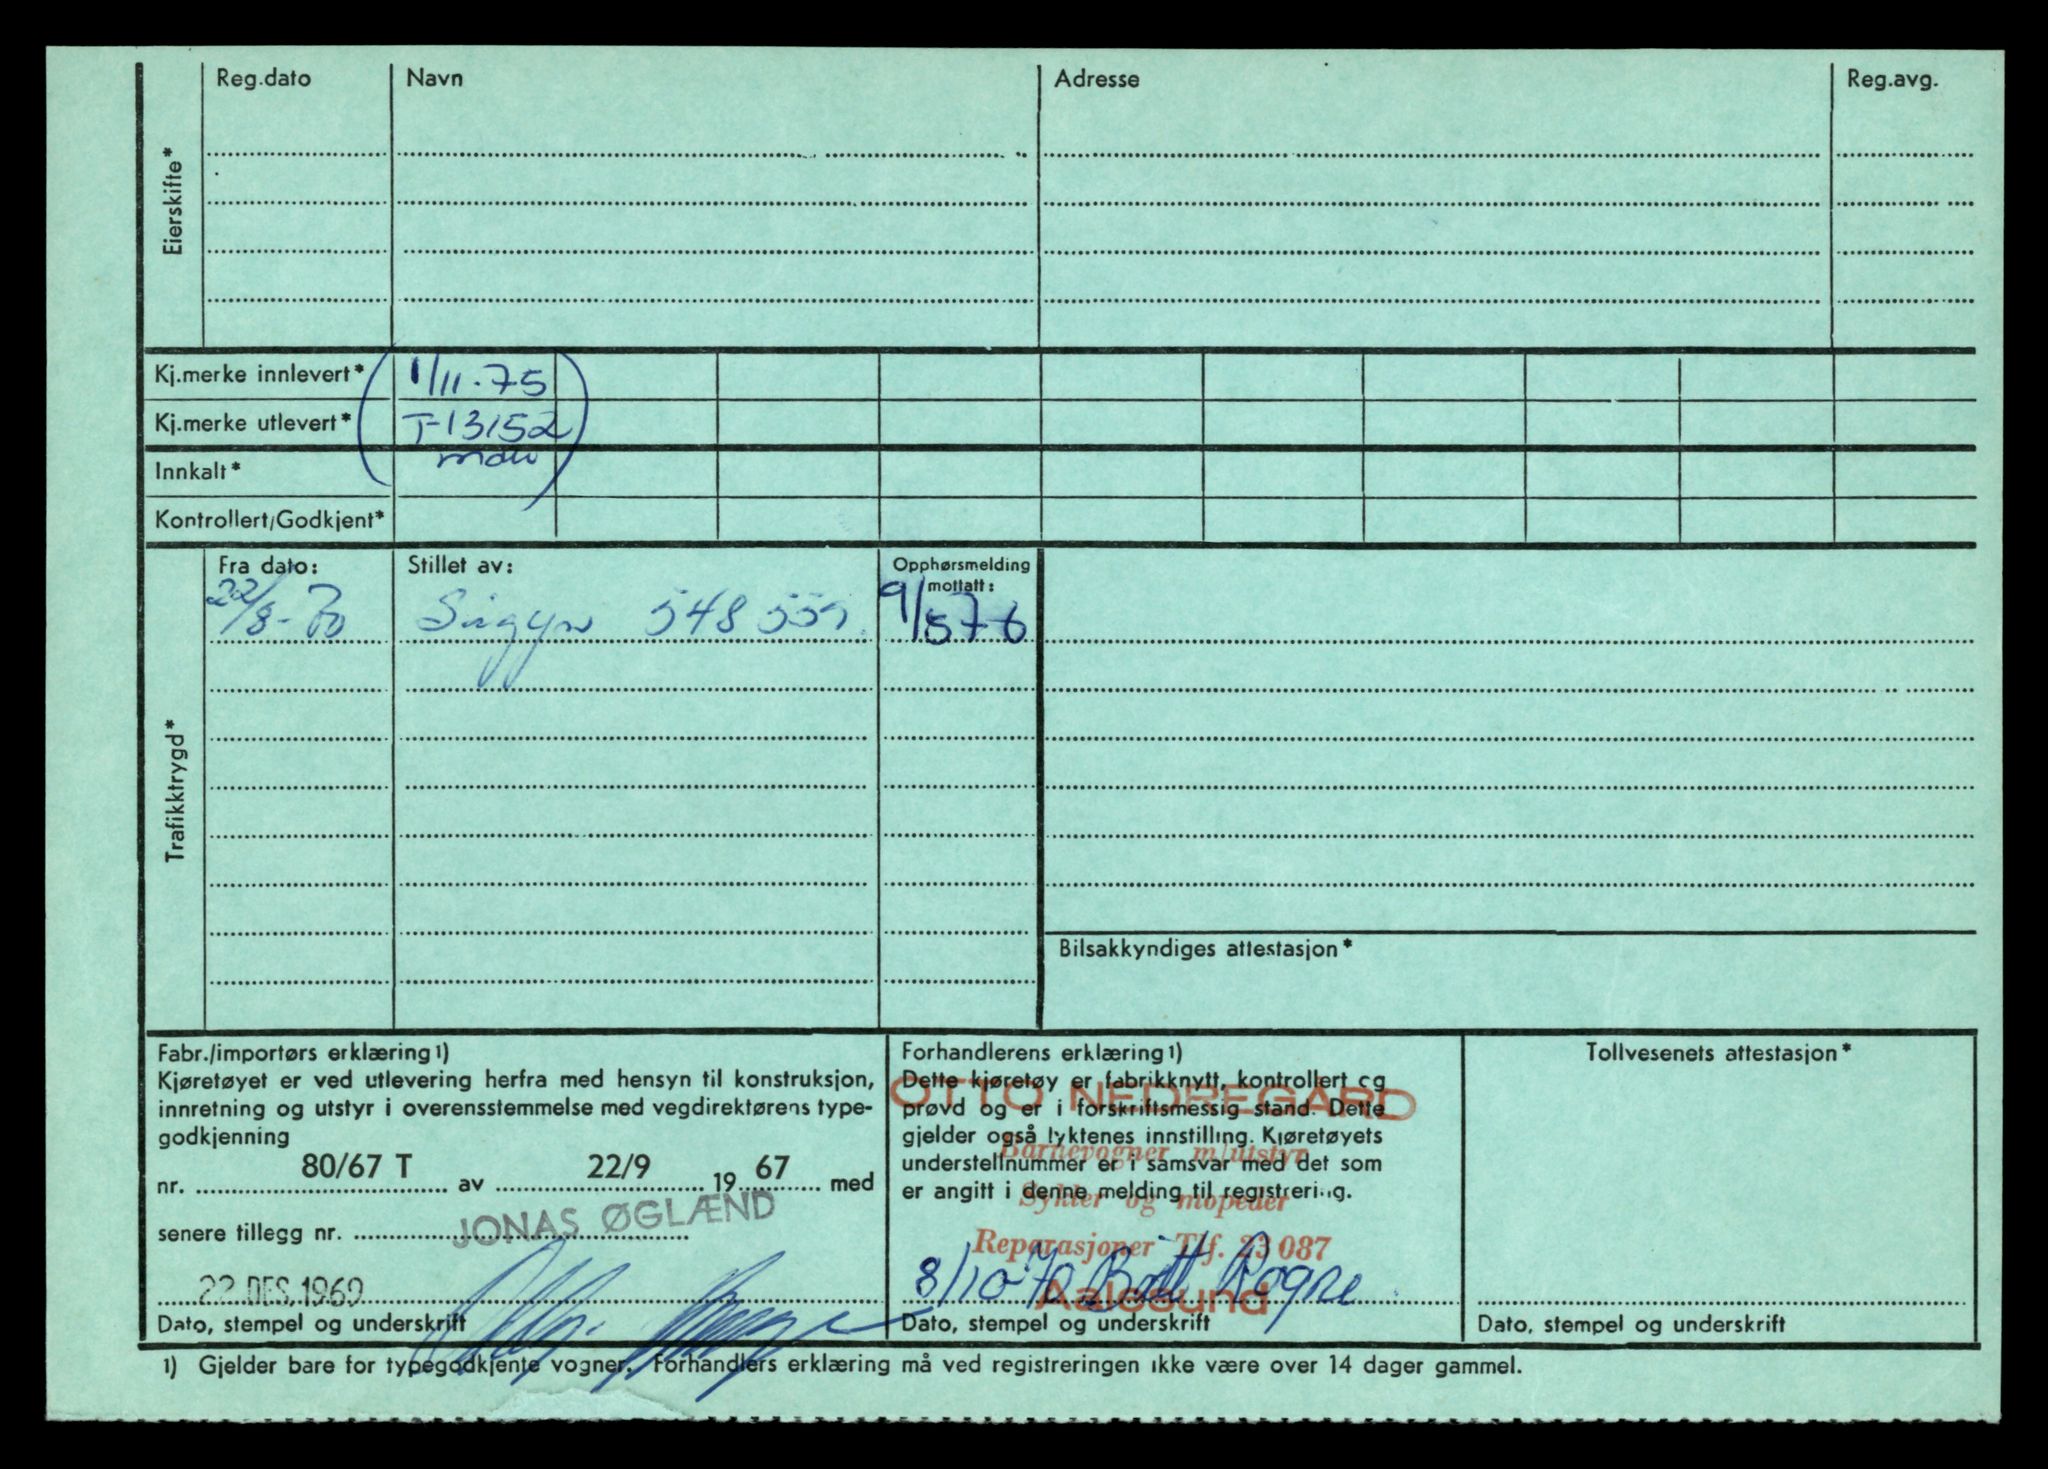 Reg.dato Navn Adresse Reg.avg.
Eierskifte*
Kj.merke innlevert* 1/11-75
Kj.merke utlevert* T-13152
Innkalt*
Kontrollert/Godkjent*
Fra dato: Stillet av: Opphørsmelding
mottatt:
22/8-70 Sigyn 548 559 9/5 76
Trafikktrygd*
Bilsakkyndiges attestasjon*
Fabr./importørs erklæring1)
Kjøretøyet er ved utlevering herfra med hensyn til konstruksjon,
innretning og utstyr i overensstemmelse med vegdirektørens type-
godkjenning
nr. 80/67 T av 22/9 19 67 med
senere tillegg nr. JONAS ØGLÆND
22 DES. 1969
Dato, stempel og underskrift
Forhandlerens erklæring1)
Dette kjøretøy er fabrikknytt, kontrollert og
prøvd og er i forskriftsmessig stand. Dette
gjelder også lyktenes innstilling. Kjøretøyets
understellnummer er i samsvar med det som
er angitt i denne melding til registrering.
OTTO NEDREGÅRD
Barnevogner m/utstyr
Sykler og mopeder
Reparasjoner Tlf. 23 087
Aalesund
8/10-70 Britt Rogne
Dato, stempel og underskrift
Tollvesenets attestasjon*
Dato, stempel og underskrift
1) Gjelder bare for typegodkjente vogner. Forhandlers erklæring må ved registreringen ikke være over 14 dager gammel.